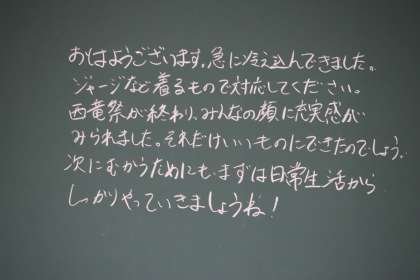 おはようございます。急に冷え込んできました。
ジャージなど着るもので対応してください。
西竜祭が終わり、みんなの顔に充実感が
みられました。それだけいいものにできたのでしょう。
次にむかうためにも、まずは日常生活から
しっかりやっていきましょうね!